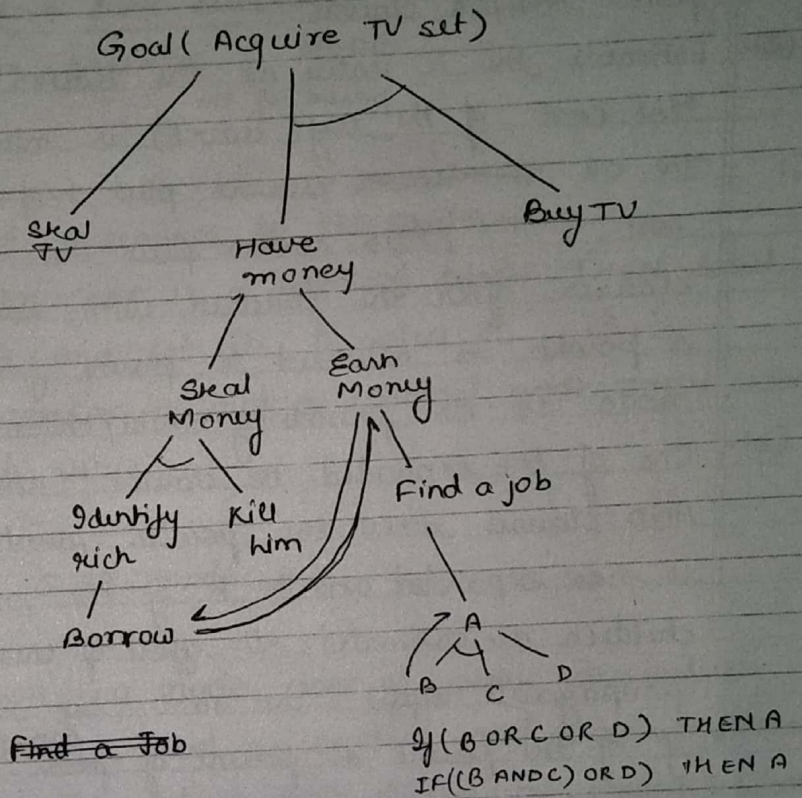 Goal ( Acquire TV set)
Steal
TV
Have
money
Buy TV
Steal
Money
Earn
Money
Identify
rich
Kill
him
Find a job
Borrow
A
B
C
D
Find a Job
If (B OR C OR D) THEN A
IF((B AND C) OR D) THEN A